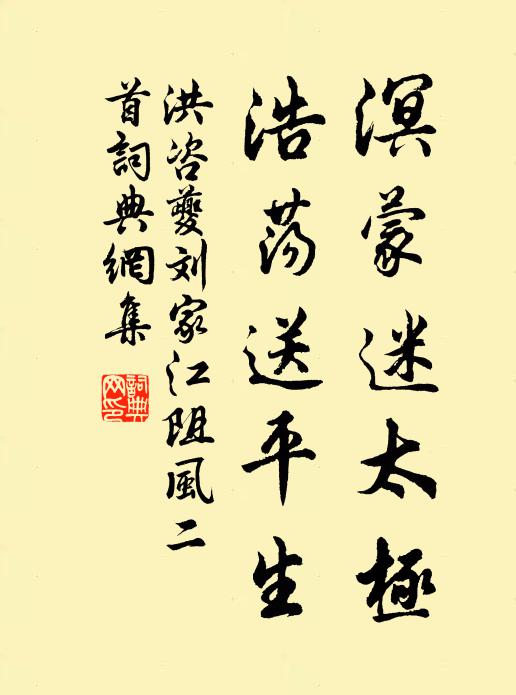 溟蒙迷太極
浩蕩送平生
洪咨夔刘家江阻風二
首詞典網集
詞典
网印